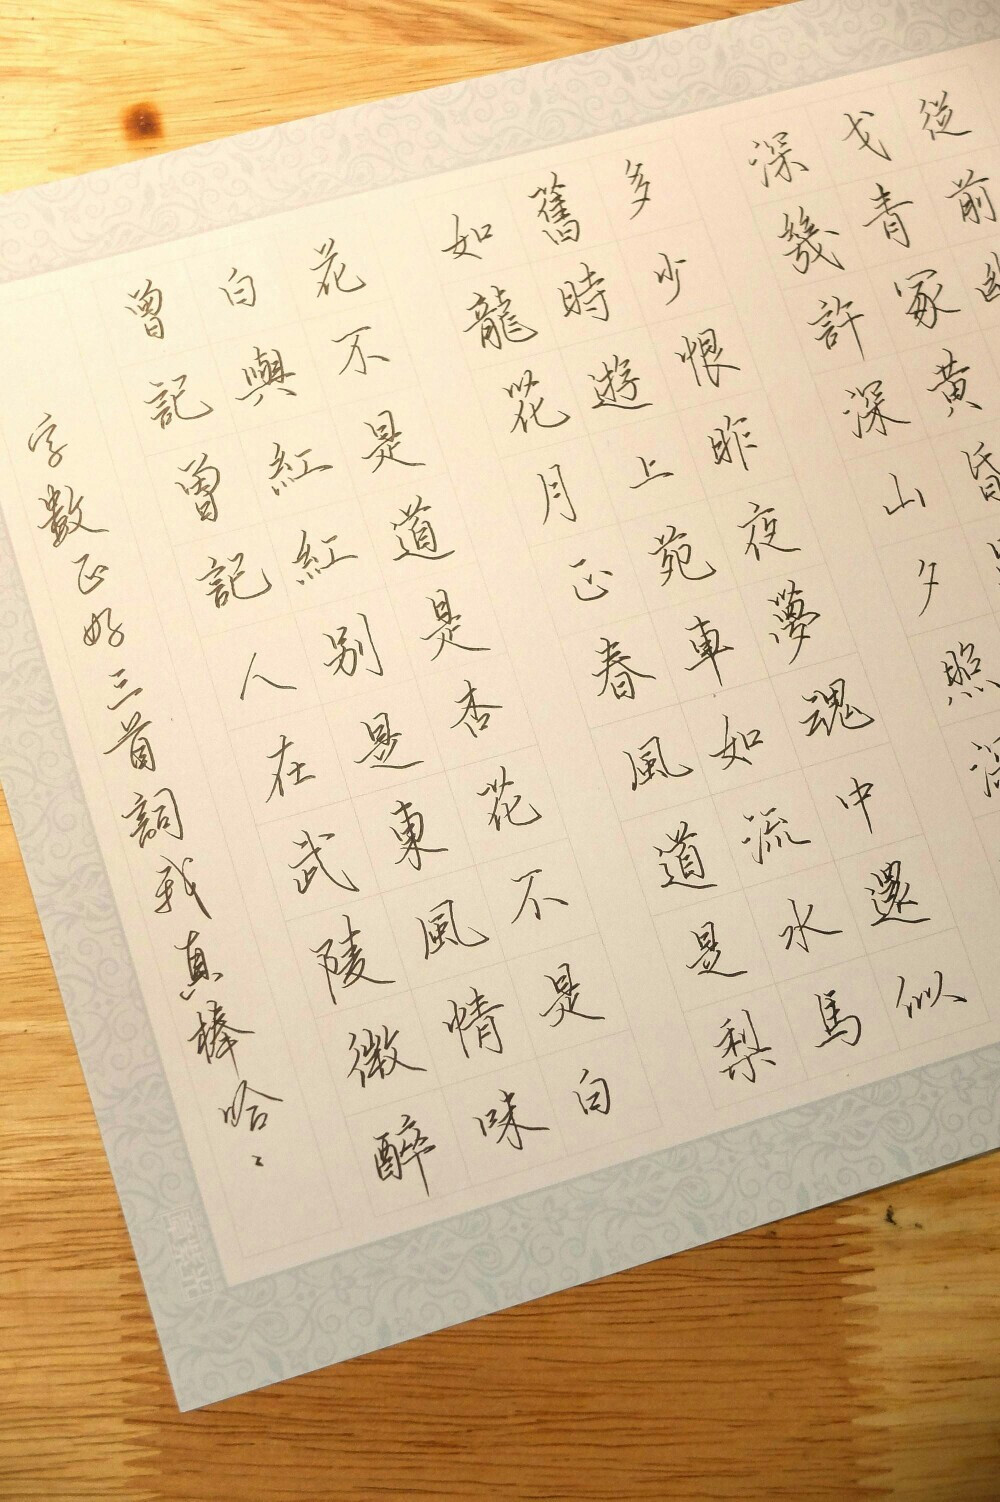 從前
戈青冢黃昏
深幾許深山夕照深
多少恨昨夜夢魂中還似
舊時遊上苑車如流水馬
如龍花月正春風道是梨
花不是道是杏花不是白
白與紅紅別是東風情味
曾記曾記人在武陵微醉
字數正好三首詞我真棒哈、、